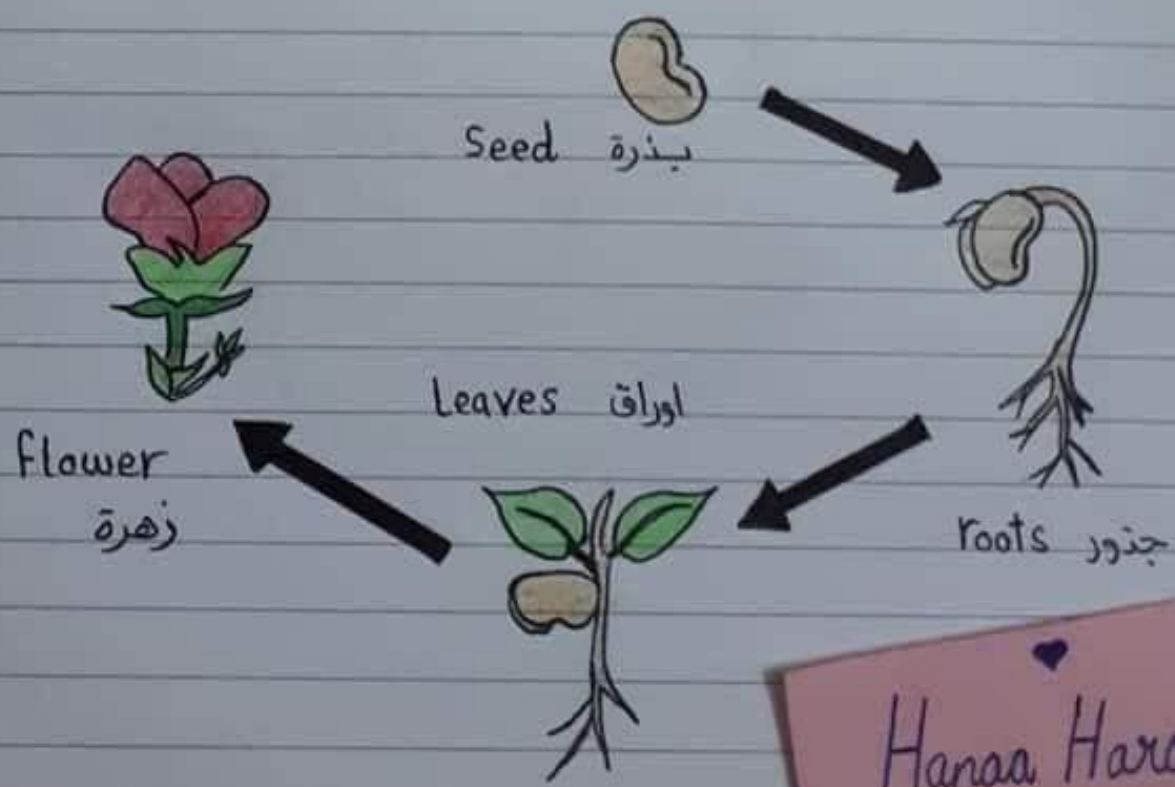 Seed بذرة
Leaves اوراق
flower
زهرة
roots جذور
Hanaa